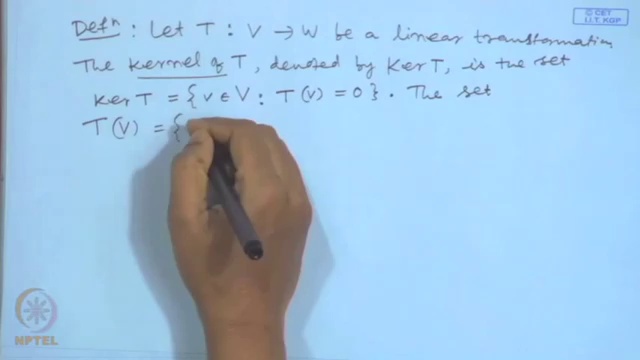 © CET
I.I.T. KGP
Defn : Let T : V → W be a linear transformation.
The Kernel of T, denoted by Ker T, is the set
Ker T = { v ∈ V : T(v) = 0 } . The set
T(V) = {
NPTEL